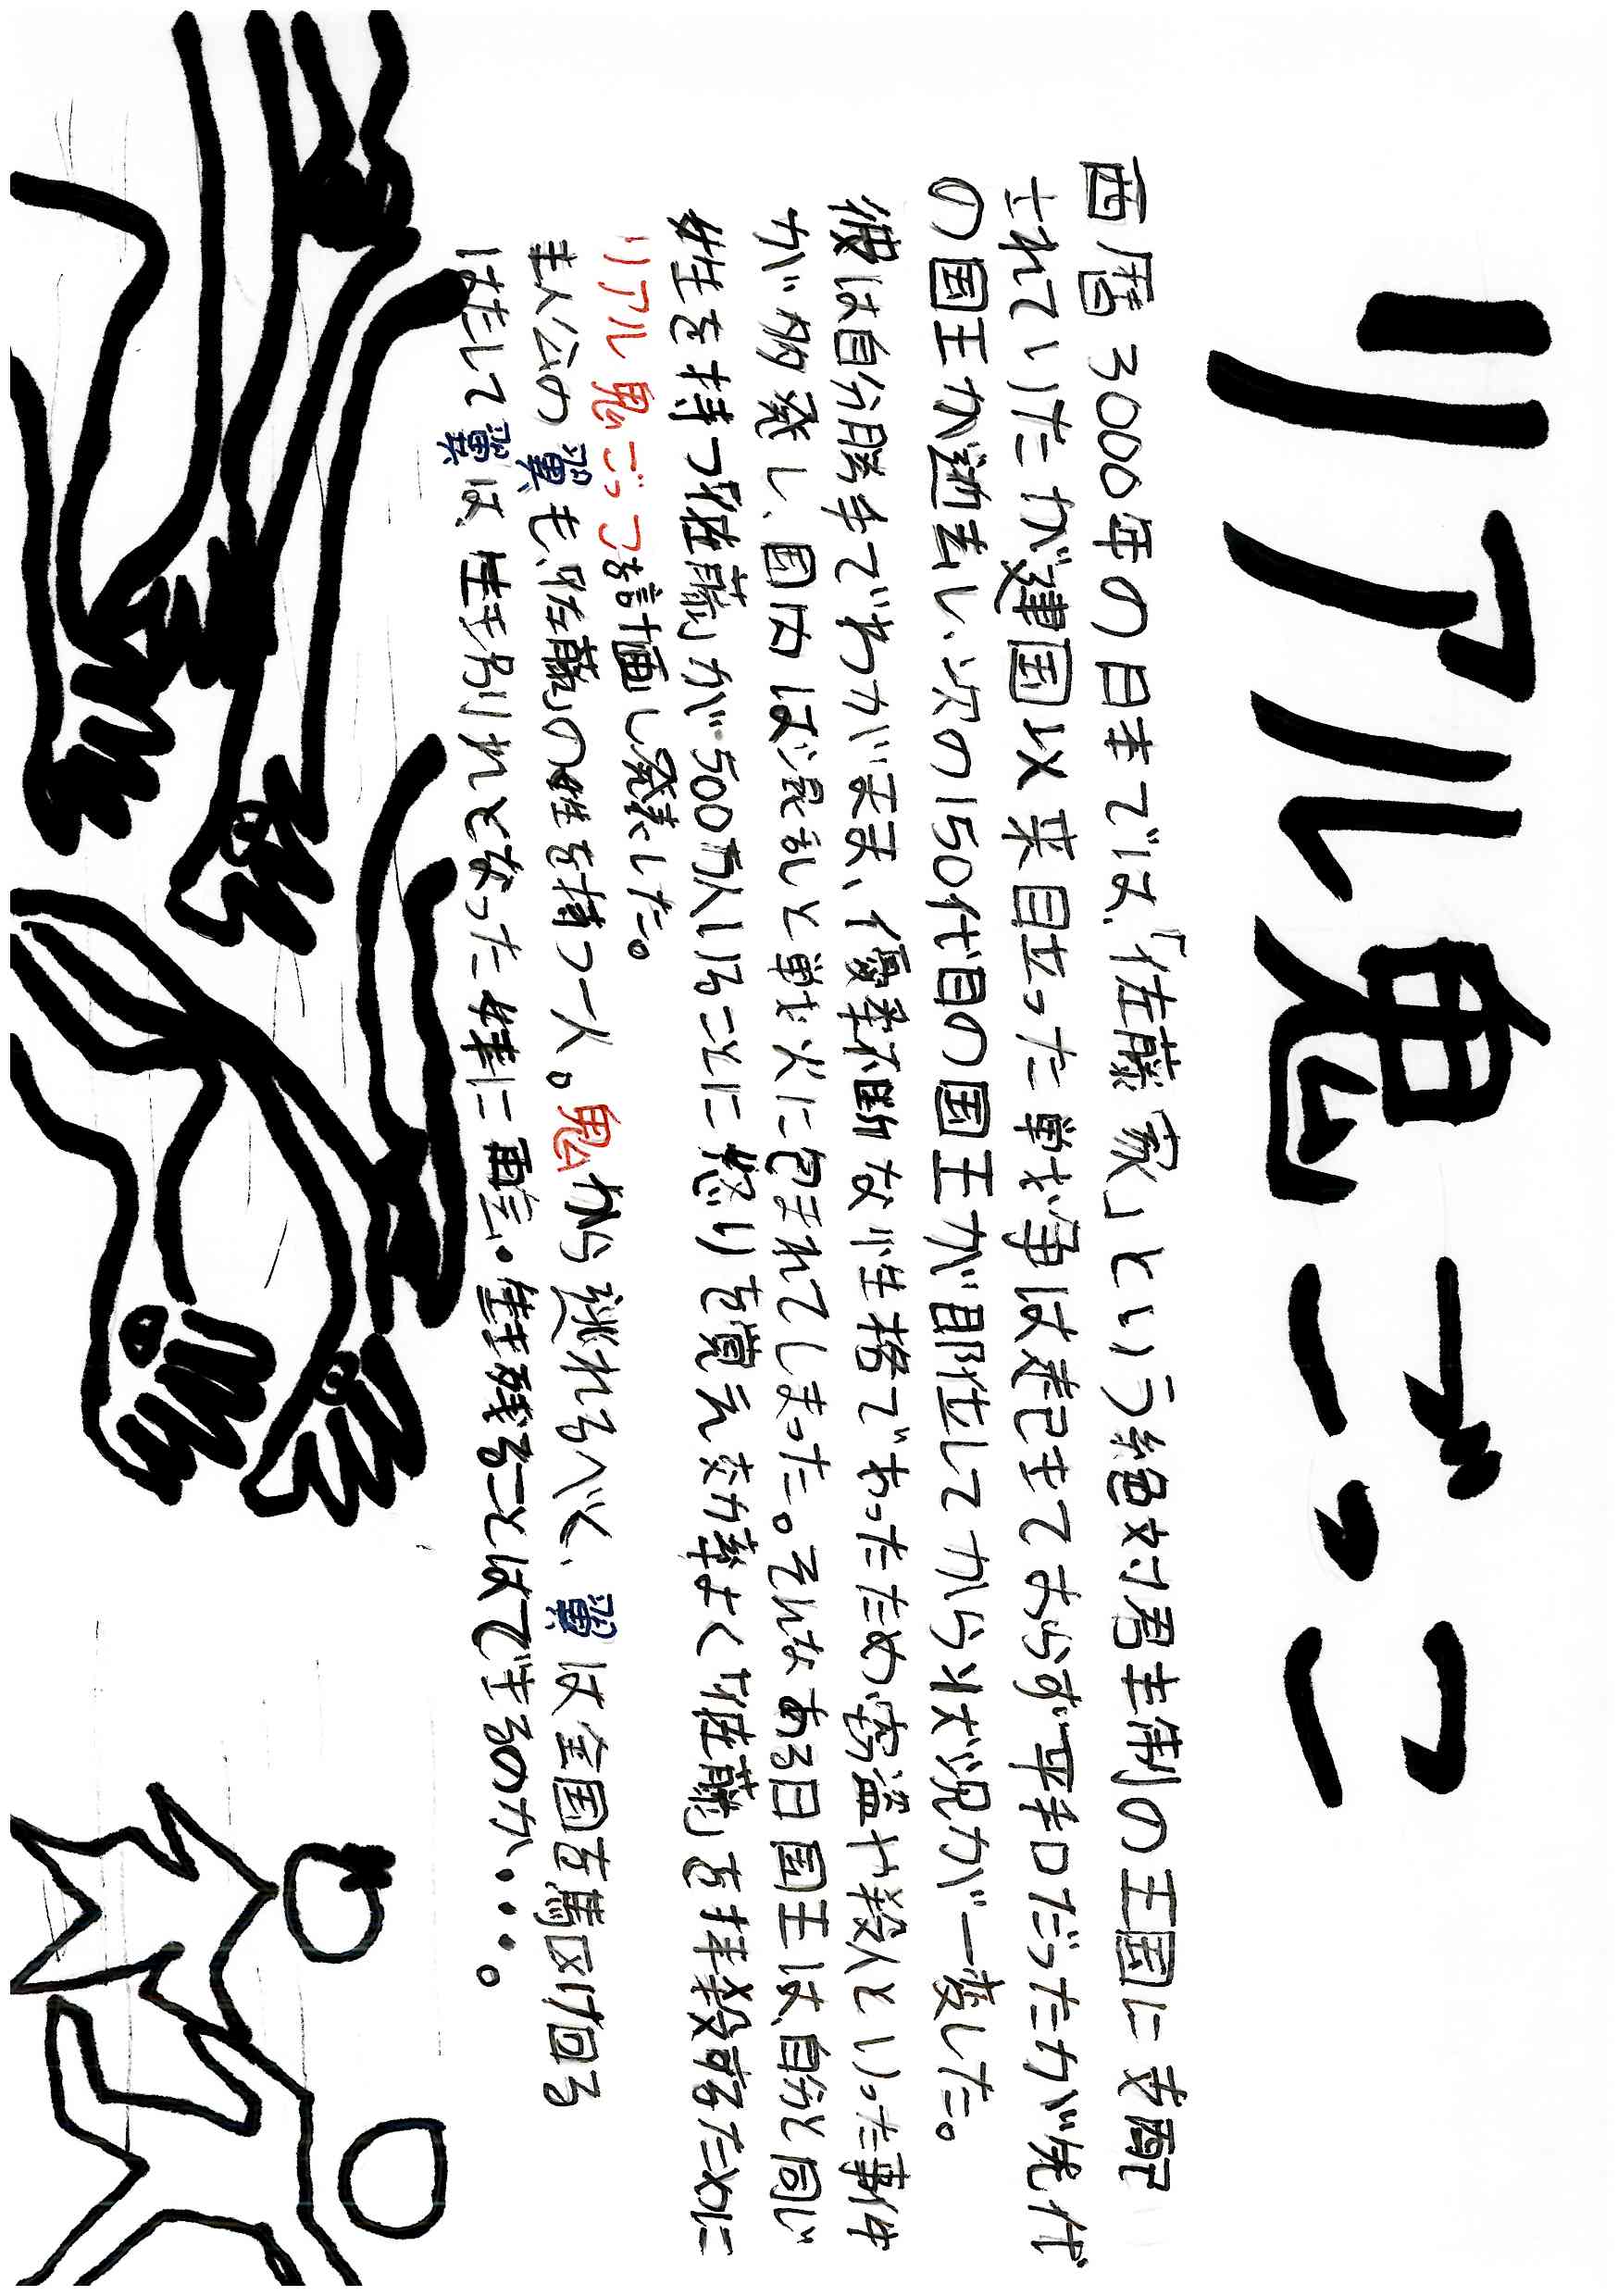 リアル鬼ごっこ
西暦3000年の日本では、「佐藤家」という絶対君主制の王国に支配
されていたが建国以来目立った戦争は起きておらず平和だったが先代
の国王が逝去し、次の150代目の国王が即位してから状況が一変した。
彼は自分勝手でわがまま、優柔不断な性格であったため、窃盗や殺人といった事件
が多発し、国内は混乱と戦火に包まれてしまった。そんなある日国王は、自分と同じ
姓を持つ「佐藤」が500万人いることに怒りを覚え効率よく「佐藤」を抹殺するために
リアル鬼ごっこを計画し発表した。
主人公の翼も、「佐藤」の姓を持つ一人。鬼から逃れるべく、翼は全国を駆け回る
はたして翼は、生き別れとなった妹に再会・生き残ることはできるのか・・・。